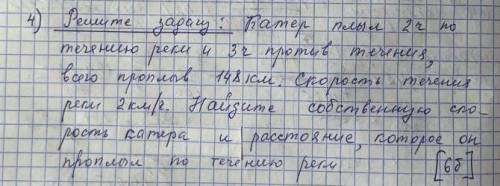 4) Решите задачу: Катер плыл 2ч по
течению реки и 3ч против течения,
всего проплыв 148 км. Скорость течения
реки 2км/ч. Найдите собственную ско-
рость катера и расстояние, которое он
проплыл по течению реки [6б]